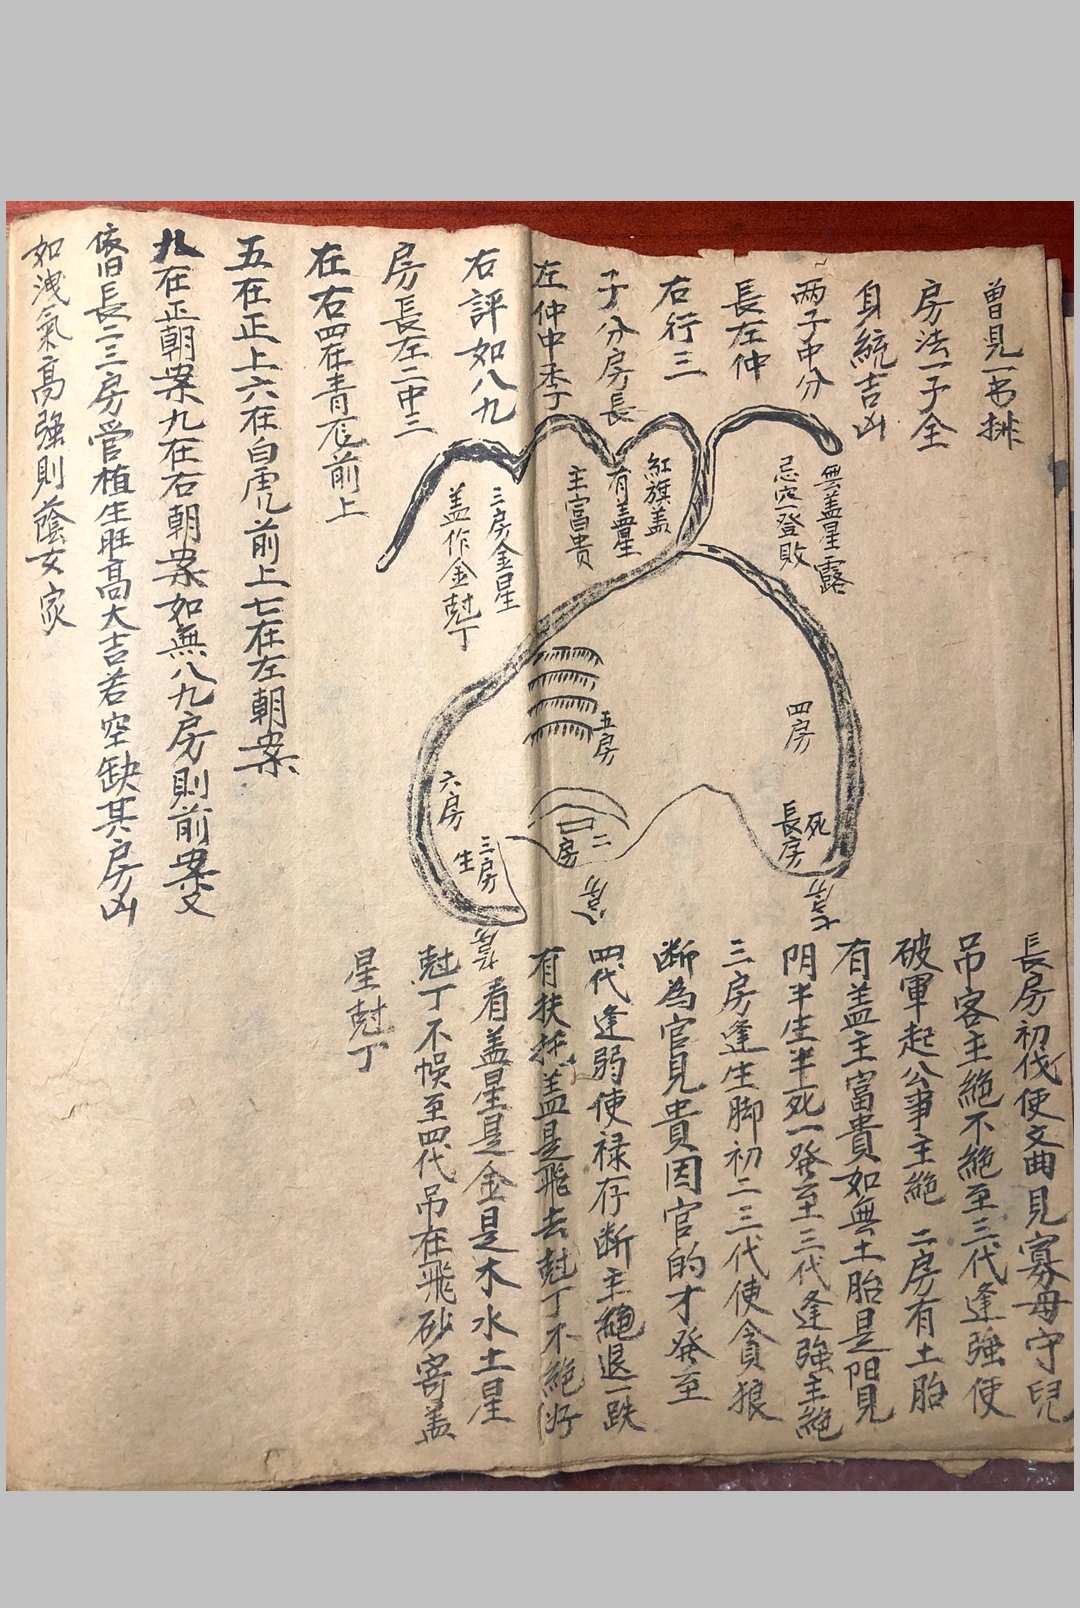 曽見一书排
房法一子全
身統吉凶
両子中分
長左仲
右行三
子分房長
左仲中季
右評如八九
房長左二中三
在右四在青尨前上
五在正上六在白虎前上七在左朝案
八在正朝案九在右朝案如無八九房則前案又
依旧長二三房管植生旺高大吉若空缺其房凶
如洩氣高強則蔭女家
無盖星露
忌空登敗
紅旗盖
有盖星
主富貴
三房金星
盖作金尅丁
四房
五房
六房
死
長房
二房
三房
生
七房
八房
九房
長房初代使文曲見寡母守兒
吊客主絶不絶至三代逢強使
破軍起公事主絶 二房有土胎
有盖主富貴如無土胎是阳見
阴半生半死一発至三代逢強主絶
三房逢生脚初二三代使貪狼
断為官見貴因官的才発至
四代逢弱使禄存断主絶退一跌
有扶托盖是飛去尅丁不絶
看盖星是金是木水土星
尅丁不悞至四代吊在飛砂寄盖
星尅丁